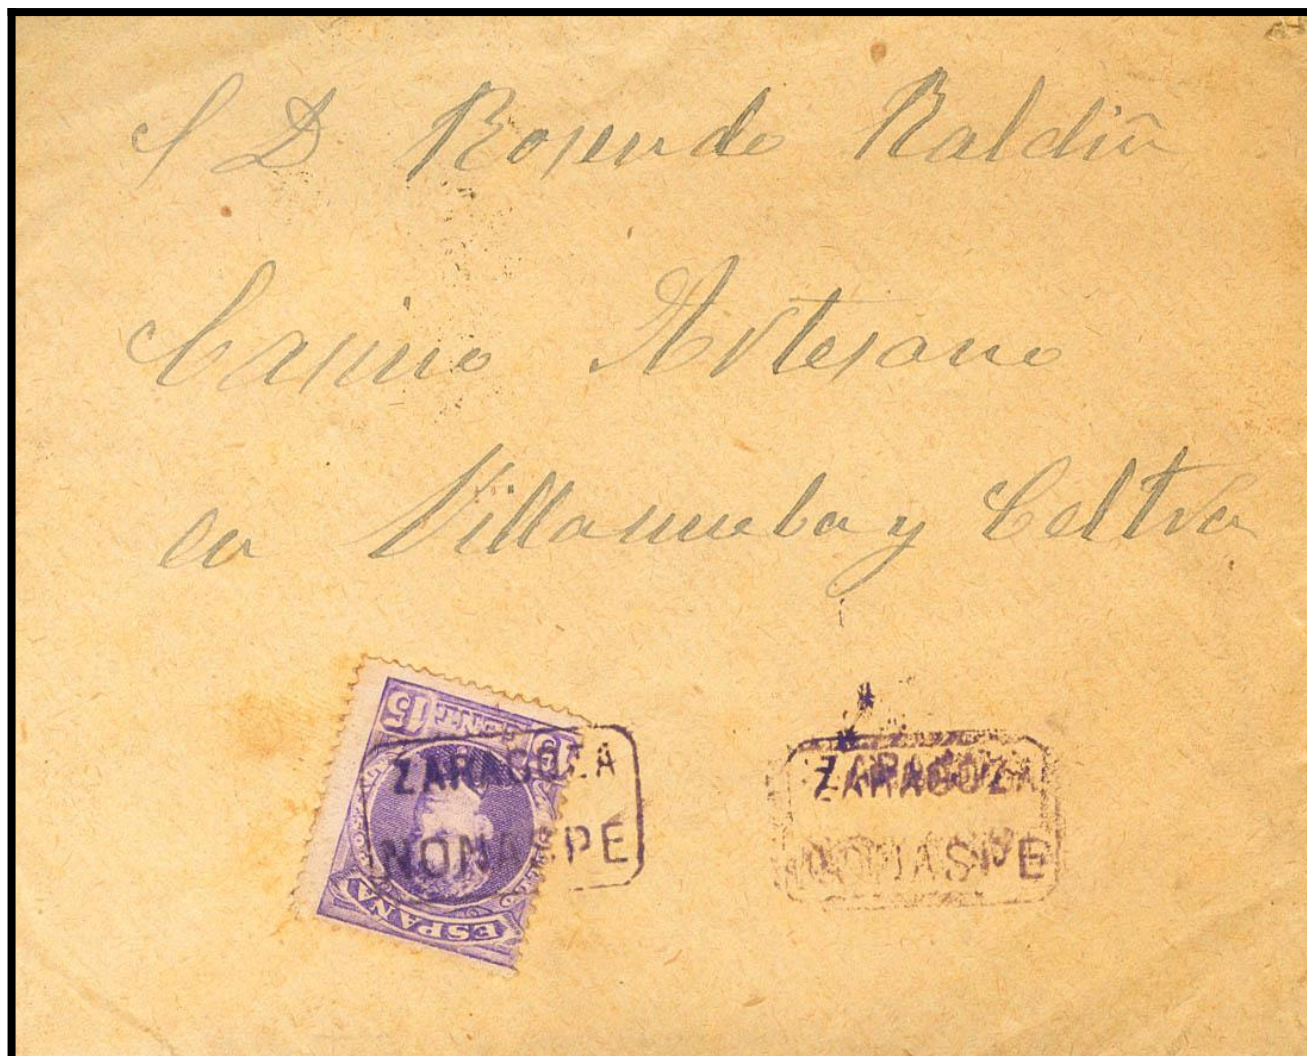 S D Rosendo Raldin
Casino Artesano
en Villanueba y Celtru
15 CENT 15
ESPAÑA
ZARAGOZA
NONASPE
ZARAGOZA
NONASPE